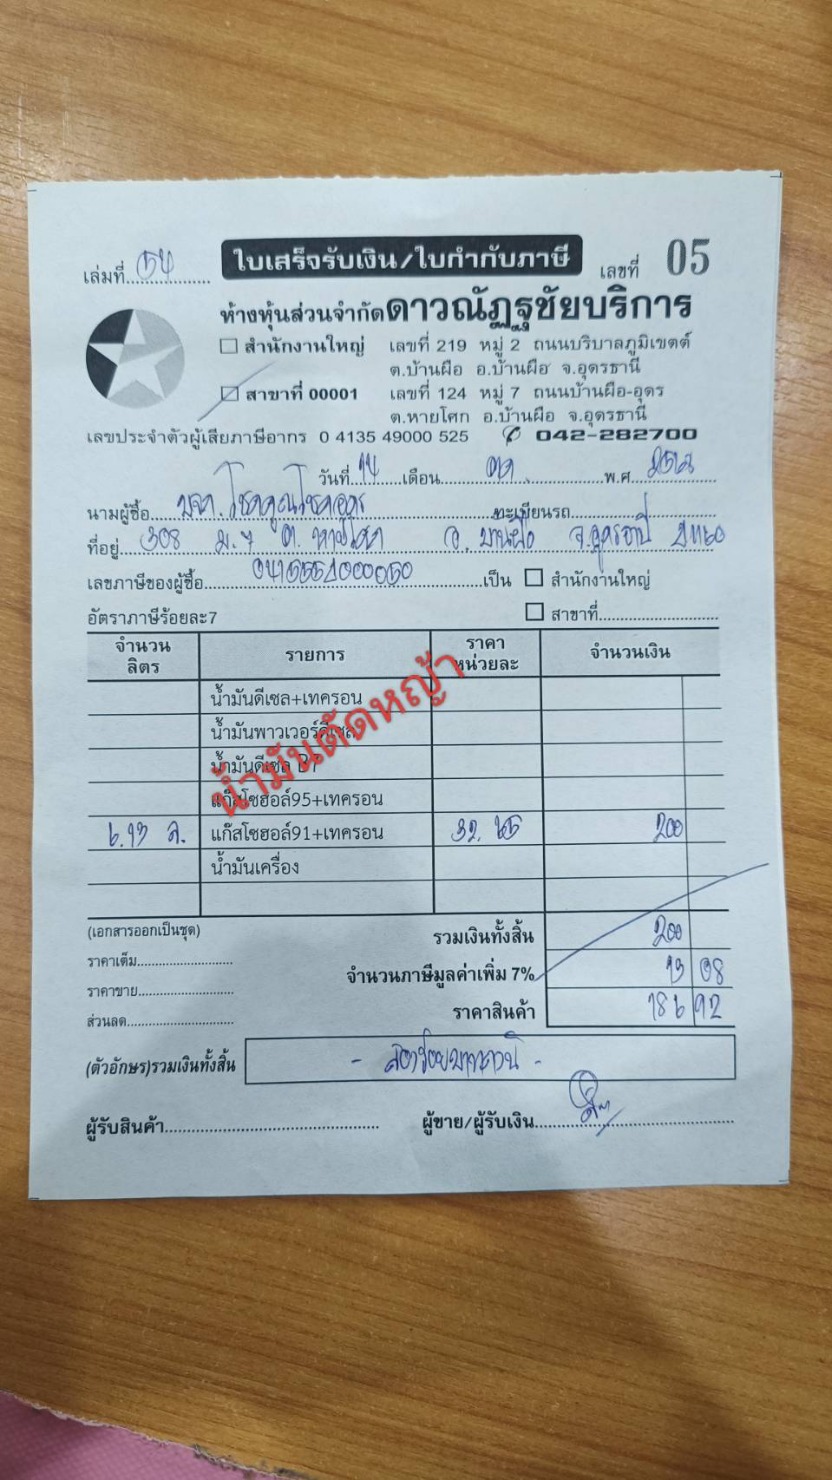 เล่มที่ 54 ใบเสร็จรับเงิน/ใบกำกับภาษี เลขที่ 05
ห้างหุ้นส่วนจำกัดดาวณัฏฐชัยบริการ
สำนักงานใหญ่ เลขที่ 219 หมู่ 2 ถนนบริบาลภูมิเขตต์
ต.บ้านผือ อ.บ้านผือ จ.อุดรธานี
สาขาที่ 00001 เลขที่ 124 หมู่ 7 ถนนบ้านผือ-อุดร
ต.หายโศก อ.บ้านผือ จ.อุดรธานี
เลขประจำตัวผู้เสียภาษีอากร 0 4135 49000 525 042-282700
วันที่ 14 เดือน พ.ศ.
นามผู้ซื้อ บจก. โชคคูณโชคอุดร ทะเบียนรถ
ที่อยู่ 308 ม.7 ต. หายโศก อ. บ้านผือ จ.อุดรธานี 41160
เลขภาษีของผู้ซื้อ เป็น สำนักงานใหญ่
อัตราภาษีร้อยละ7 สาขาที่
จำนวน ลิตร รายการ ราคา หน่วยละ จำนวนเงิน
น้ำมันดีเซล+เทครอน
น้ำมันพาวเวอร์ดีเซล
น้ำมันดีเซล B7
แก๊สโซฮอล์95+เทครอน
6.13 ล. แก๊สโซฮอล์91+เทครอน 32.65 200
น้ำมันเครื่อง
น้ำมันตัดหญ้า
(เอกสารออกเป็นชุด) รวมเงินทั้งสิ้น 200
ราคาเต็ม
จำนวนภาษีมูลค่าเพิ่ม 7% 13 08
ราคาขาย
ราคาสินค้า 186 92
ส่วนลด
(ตัวอักษร)รวมเงินทั้งสิ้น - สองร้อยบาทถ้วน -
ผู้รับสินค้า ผู้ขาย/ผู้รับเงิน